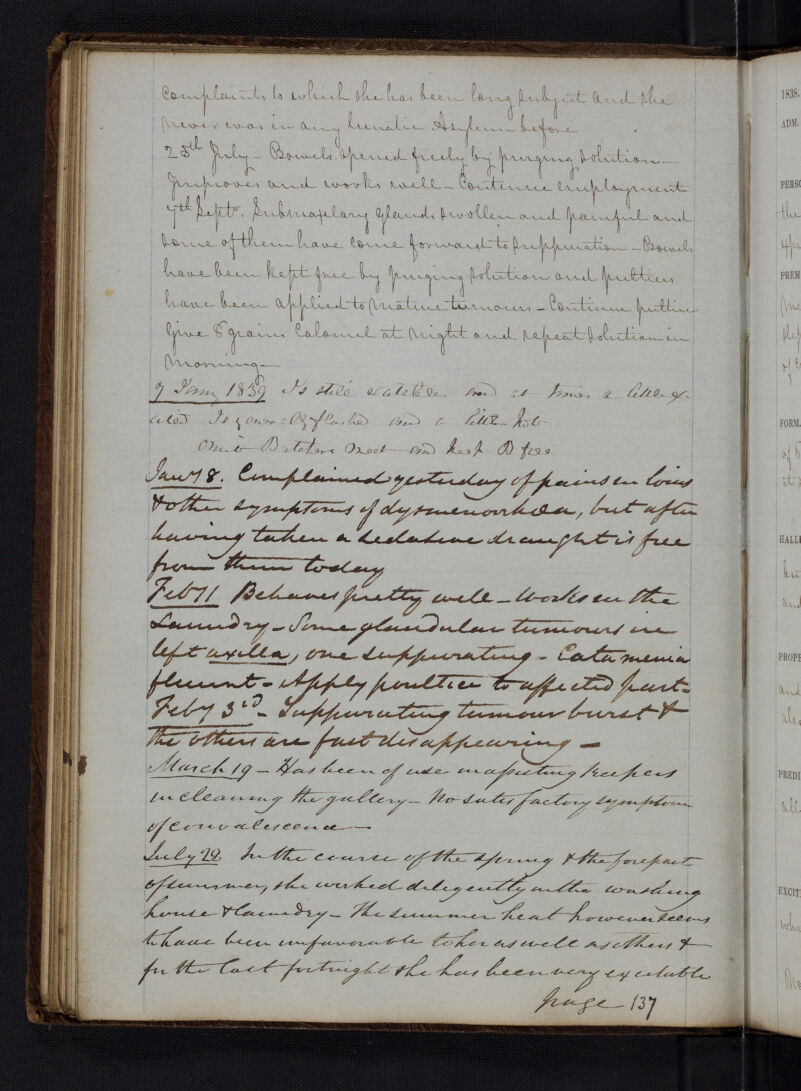 complaints to which she has been long subject and she
never was in any lunatic Asylum before
25th July - Bowels opened freely by purging solution -
Improves and works well - Continue employment
7th Septr. Submaxelary glands swollen and painful and
some of them have come forward to suppuration - Bowels
have been kept free by purging solution and putties
have been applied to mature tumours - Continue puttice
Give 8 grains Calomel at night and repeat solution in
morning -
7 Jany 1839 Is still and at times a little ex-
cited Is flushed and a little hot
Omit Butchers Meat and keep B free
Jany 18. Complained yesterday of pains in loins
& other symptoms of dysmenorrhœa, but after
having taken a sedative draught is free
from them today
Feby 1 Behaves pretty well - Works in the
Laundry - Some glandular tumours in
left axilla, one suppurating - Catamenia
fluent - Apply poultice to affected part -
Feby 3rd - Suppurating tumour burst &
the others are fast disappearing -
March 19 - Has been of use in assisting keepers
in cleaning the gallery - No satisfactory symptom
of convalescence -
July 22 In the course of the spring & the forepart
of summer, she worked diligently in the washing
house & laundry - The summer heat however seems
to have been unfavorable to her as well as others &
for the last fortnight she has been very excitable
page 137
1838.
ADM.
PERSO
PREM
FORM.
HALLU
PROPE
PREDI
EXCIT